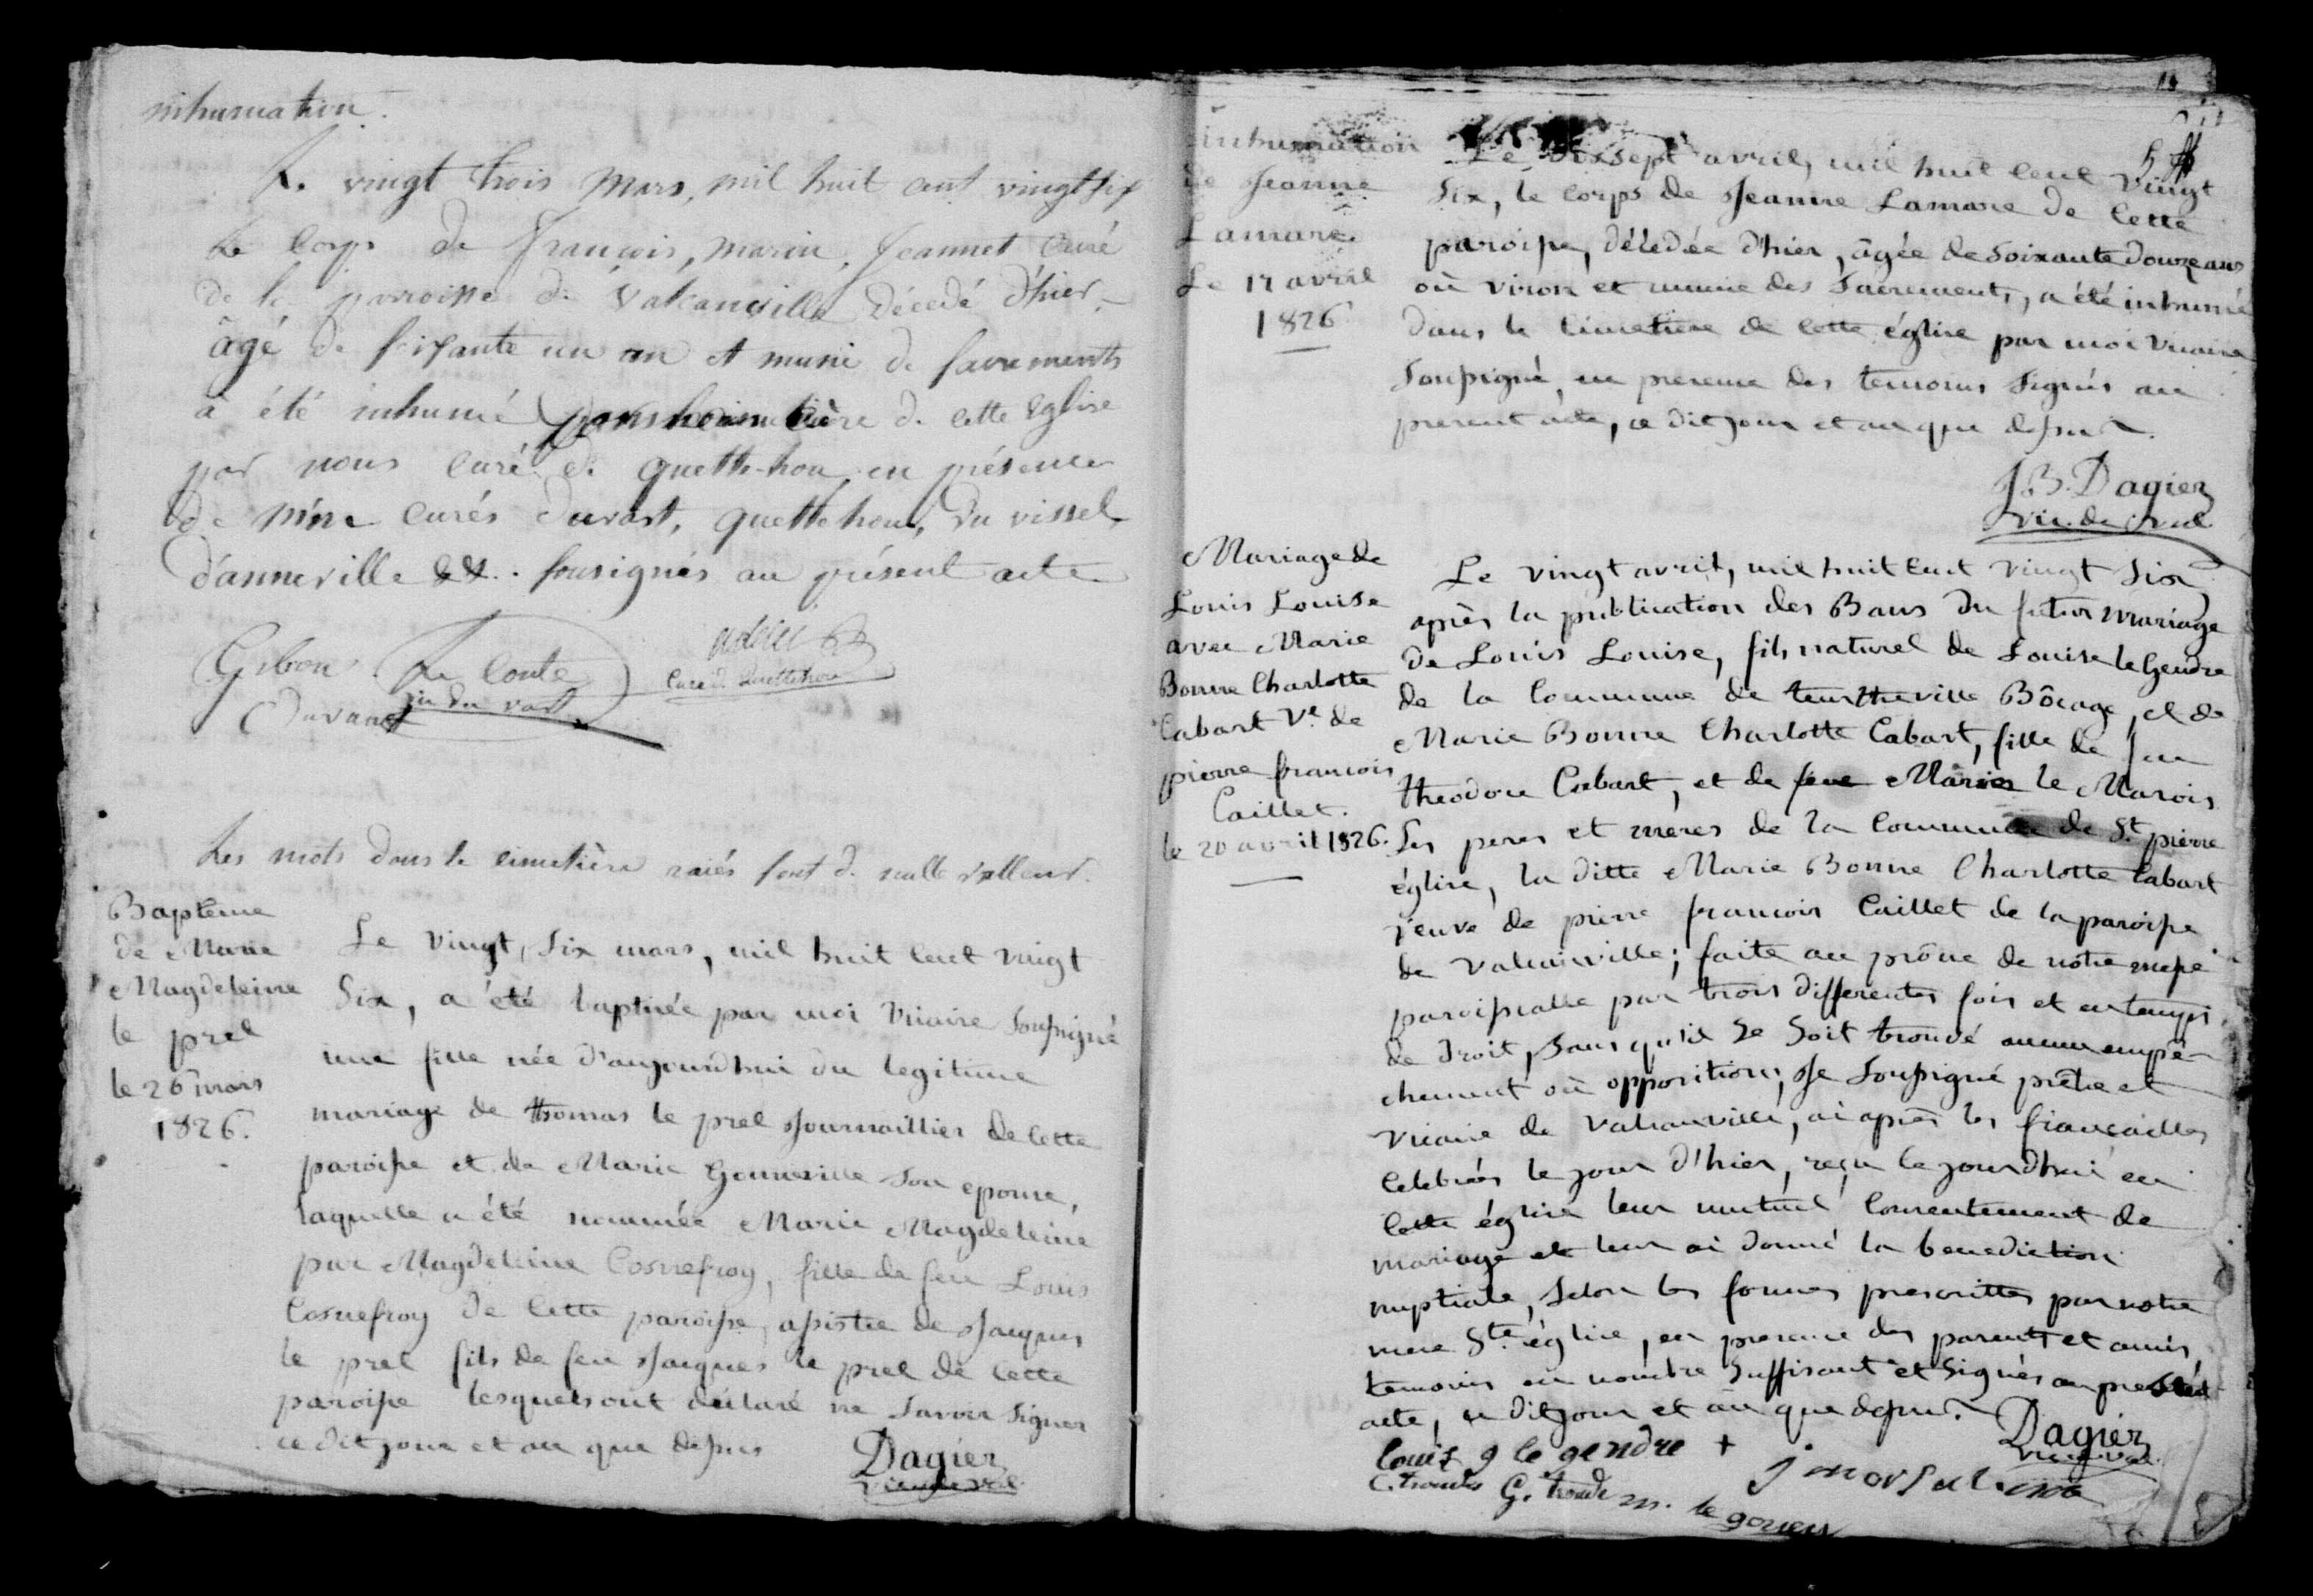 inhumation.
Le vingt trois mars, mil huit cent vingt six
le corps de françois, marin, Jeannet curé
de la parroisse de Valcanville décedé d'hier
âgé de soixante un an et muni de sacrements
a été inhumé dans le cimetière de cette Eglise
par nous curé de quette-hou en présence
de Mrs curés duvast, quettehou, du vissel,
d'anneville &&. sousignés au présent acte
Gibon Le Conte
du vast
Curé de Quettehou
Les mots dans le cimetière raiés sont de nulle valleur.
Baptême
de Marie
Magdeleine
le prel
le 26 mars
1826.
Le vingt, six mars, mil huit cent vingt
Six, a été baptisée par moi vicaire soussigné
une fille née d'aujourd'hui du legitime
mariage de thomas le prel Journaillier de cette
paroisse et de Marie Gonneville son epouse,
laquelle a été nommée Marie Magdeleine
par Magdeleine Cosnefroy, fille de feu Louis
Cosnefroy de cette paroisse, assistée de Jacques
le prel fils de feu Jacques le prel de cette
paroisse lesquels ont déclaré ne savoir signer
ce dit jour et an que dessus
Dagier
vic. de val
Inhumation
de Jeanne
Lamare
Le 17 avril
1826
Le dixsept avril, mil huit cent vingt
Six, le corps de Jeanne Lamare de cette
paroisse, décedée d'hier, âgée de soixante douze ans
où viron et munie des sacrements, a été inhumée
dans le cimetière de cette église par moi vicaire
soussigné, en presence des temoins signés au
present acte, ce dit jour et an que dessus.
J.B. Dagier
vic. de val
Mariage de
Louis Louise
avec Marie
Bonne Charlotte
Cabart Ve. de
pierre francois
Caillet.
le 20 avril 1826.
Le vingt avril, mil huit cent vingt six
après la publication des Bans du futur mariage
de Louis Louise, fils naturel de Louise le Gendre
de la Commune de teurtheville Bôcage, et de
Marie Bonne Charlotte Cabart, fille de feu
theodore Cabart, et de feue Marie le Marois
Ses peres et mères de la commune de St. pierre
église, la ditte Marie Bonne Charlotte Cabart
veuve de pierre francois Caillet de la paroisse
de Valcanville; faite au prône de notre messe
paroissialle par trois differentes fois et en temps
de droit, sans qu'il se soit trouvé aucun empê-
chement où opposition, Je soussigné prêtre et
vicaire de Valcanville, ai après les fiancailles
celebrées le jour d'hier, reçu le jourdhui en
cette église leur mutuel consentement de
mariage et leur ai donné la benediction
nuptiale, selon les formes prescrittes par notre
mere Ste. église, en presence des parents et amis
temoins en nombre suffisant et signés au present
acte, ce dit jour et an que dessus.
Dagier
vic. de val.
louis g le gendre +
G. troude m. le goueu